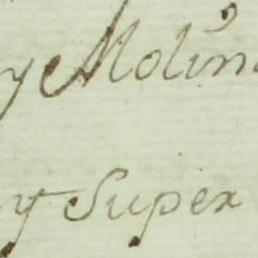 y Molin
y Super